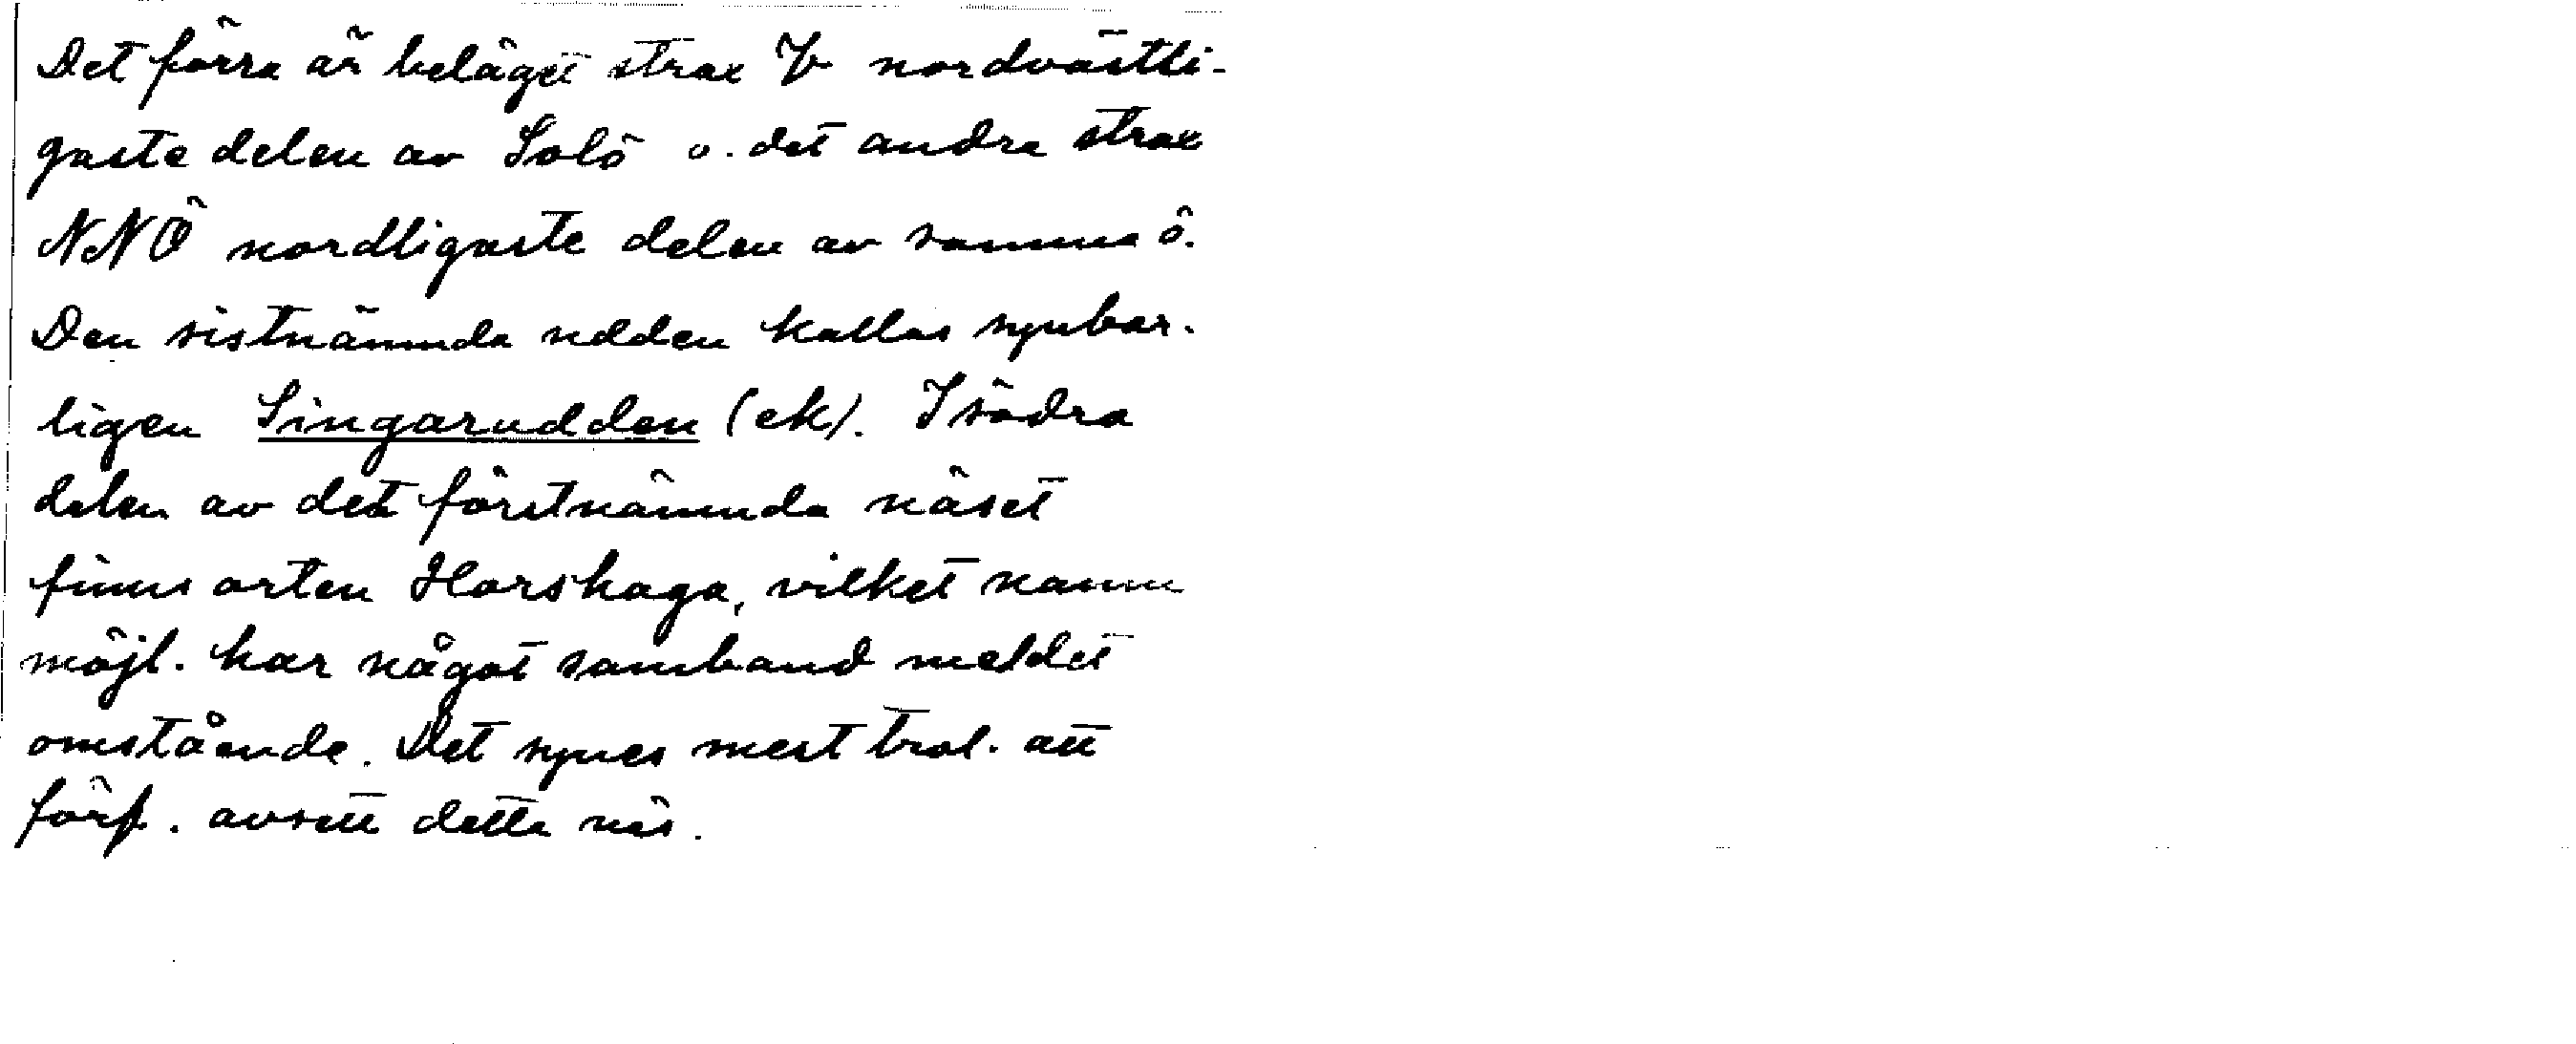 Det förra är beläget strax V nordvästli-
gaste delen av Solö o. det andra strax
NNÖ nordligaste delen av samma ö.
Den sistnämnda udden kallas synbar-
ligen Singarudden (ek). I södra
delen av det förstnämnda näset
finns orten Horshaga, vilket namn
möjl. har något samband med det
omstående. Det synes mest trol. att
förf. avsett detta näs.